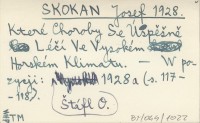 SKOKAN Josef 1928.
Které Choroby Se Úspěšně
Léčí Ve Vysokém
Horském Klimatu. — W po
zycji: 1928 a (s. 117-
-118).
Štéfl O.
TM